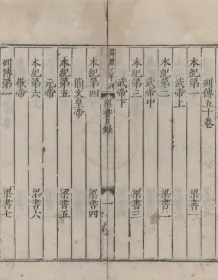 列傳五十卷
本紀第一 梁書一
武帝上
本紀第二 梁書二
武帝中
本紀第三 梁書三
武帝下
萬曆三年刊 梁書目錄 一
本紀第四 梁書四
簡文皇帝
本紀第五 梁書五
元帝
本紀第六 梁書六
敬帝
列傳第一 梁書七